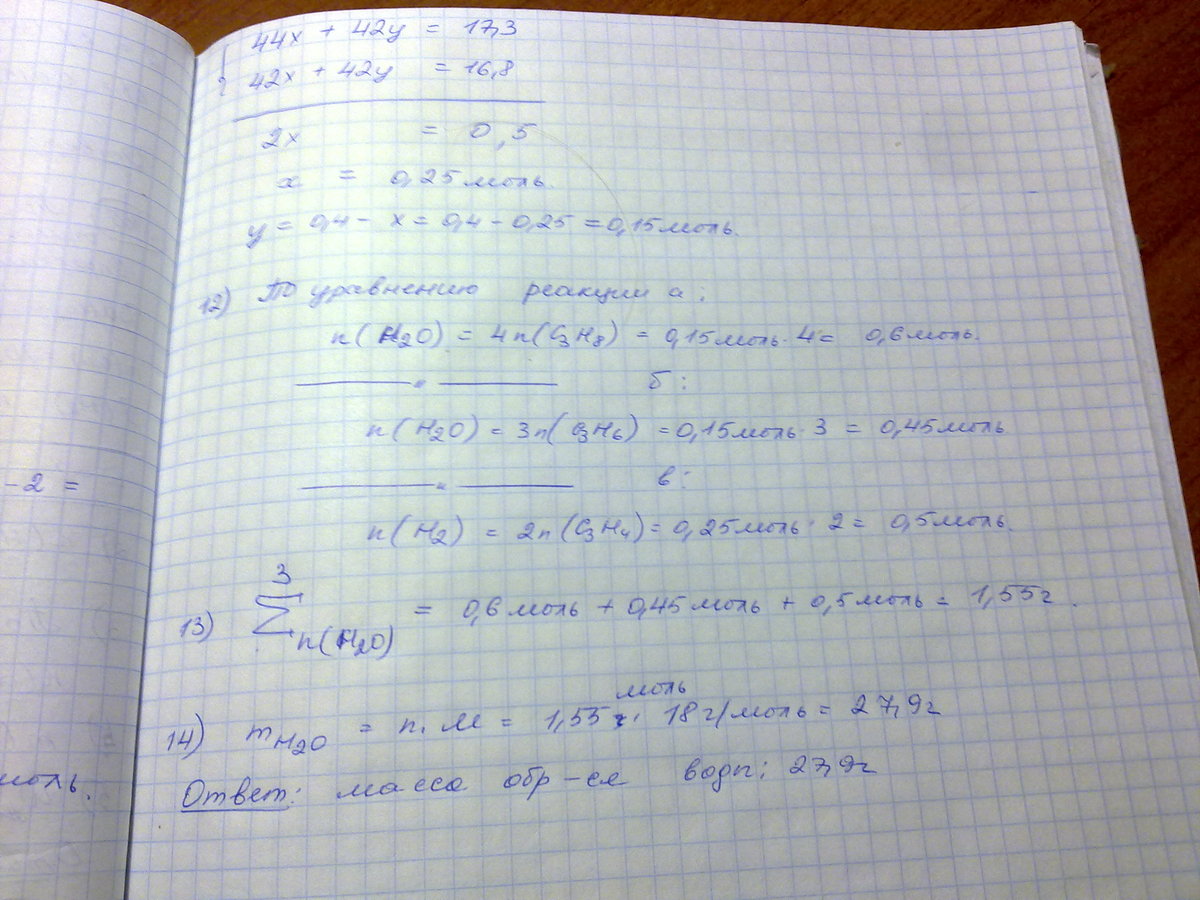 44x + 42y = 17,3
42x + 42y = 16,8
2x = 0,5
x = 0,25 моль.
y = 0,4 - x = 0,4 - 0,25 = 0,15 моль.
12) По уравнению реакции а:
n(H2O) = 4n(C3H8) = 0,15 моль · 4 = 0,6 моль.
—— " —— б:
n(H2O) = 3n(C3H6) = 0,15 моль · 3 = 0,45 моль
—— " —— в:
n(H2) = 2n(C3H4) = 0,25 моль · 2 = 0,5 моль.
13) 3 ∑ n(H2O) = 0,6 моль + 0,45 моль + 0,5 моль = 1,55 г.
моль
14) mH2O = n · M = 1,55 · 18 г/моль = 27,9 г
Ответ: масса обр-ся воды: 27,9 г
-2 =
моль.